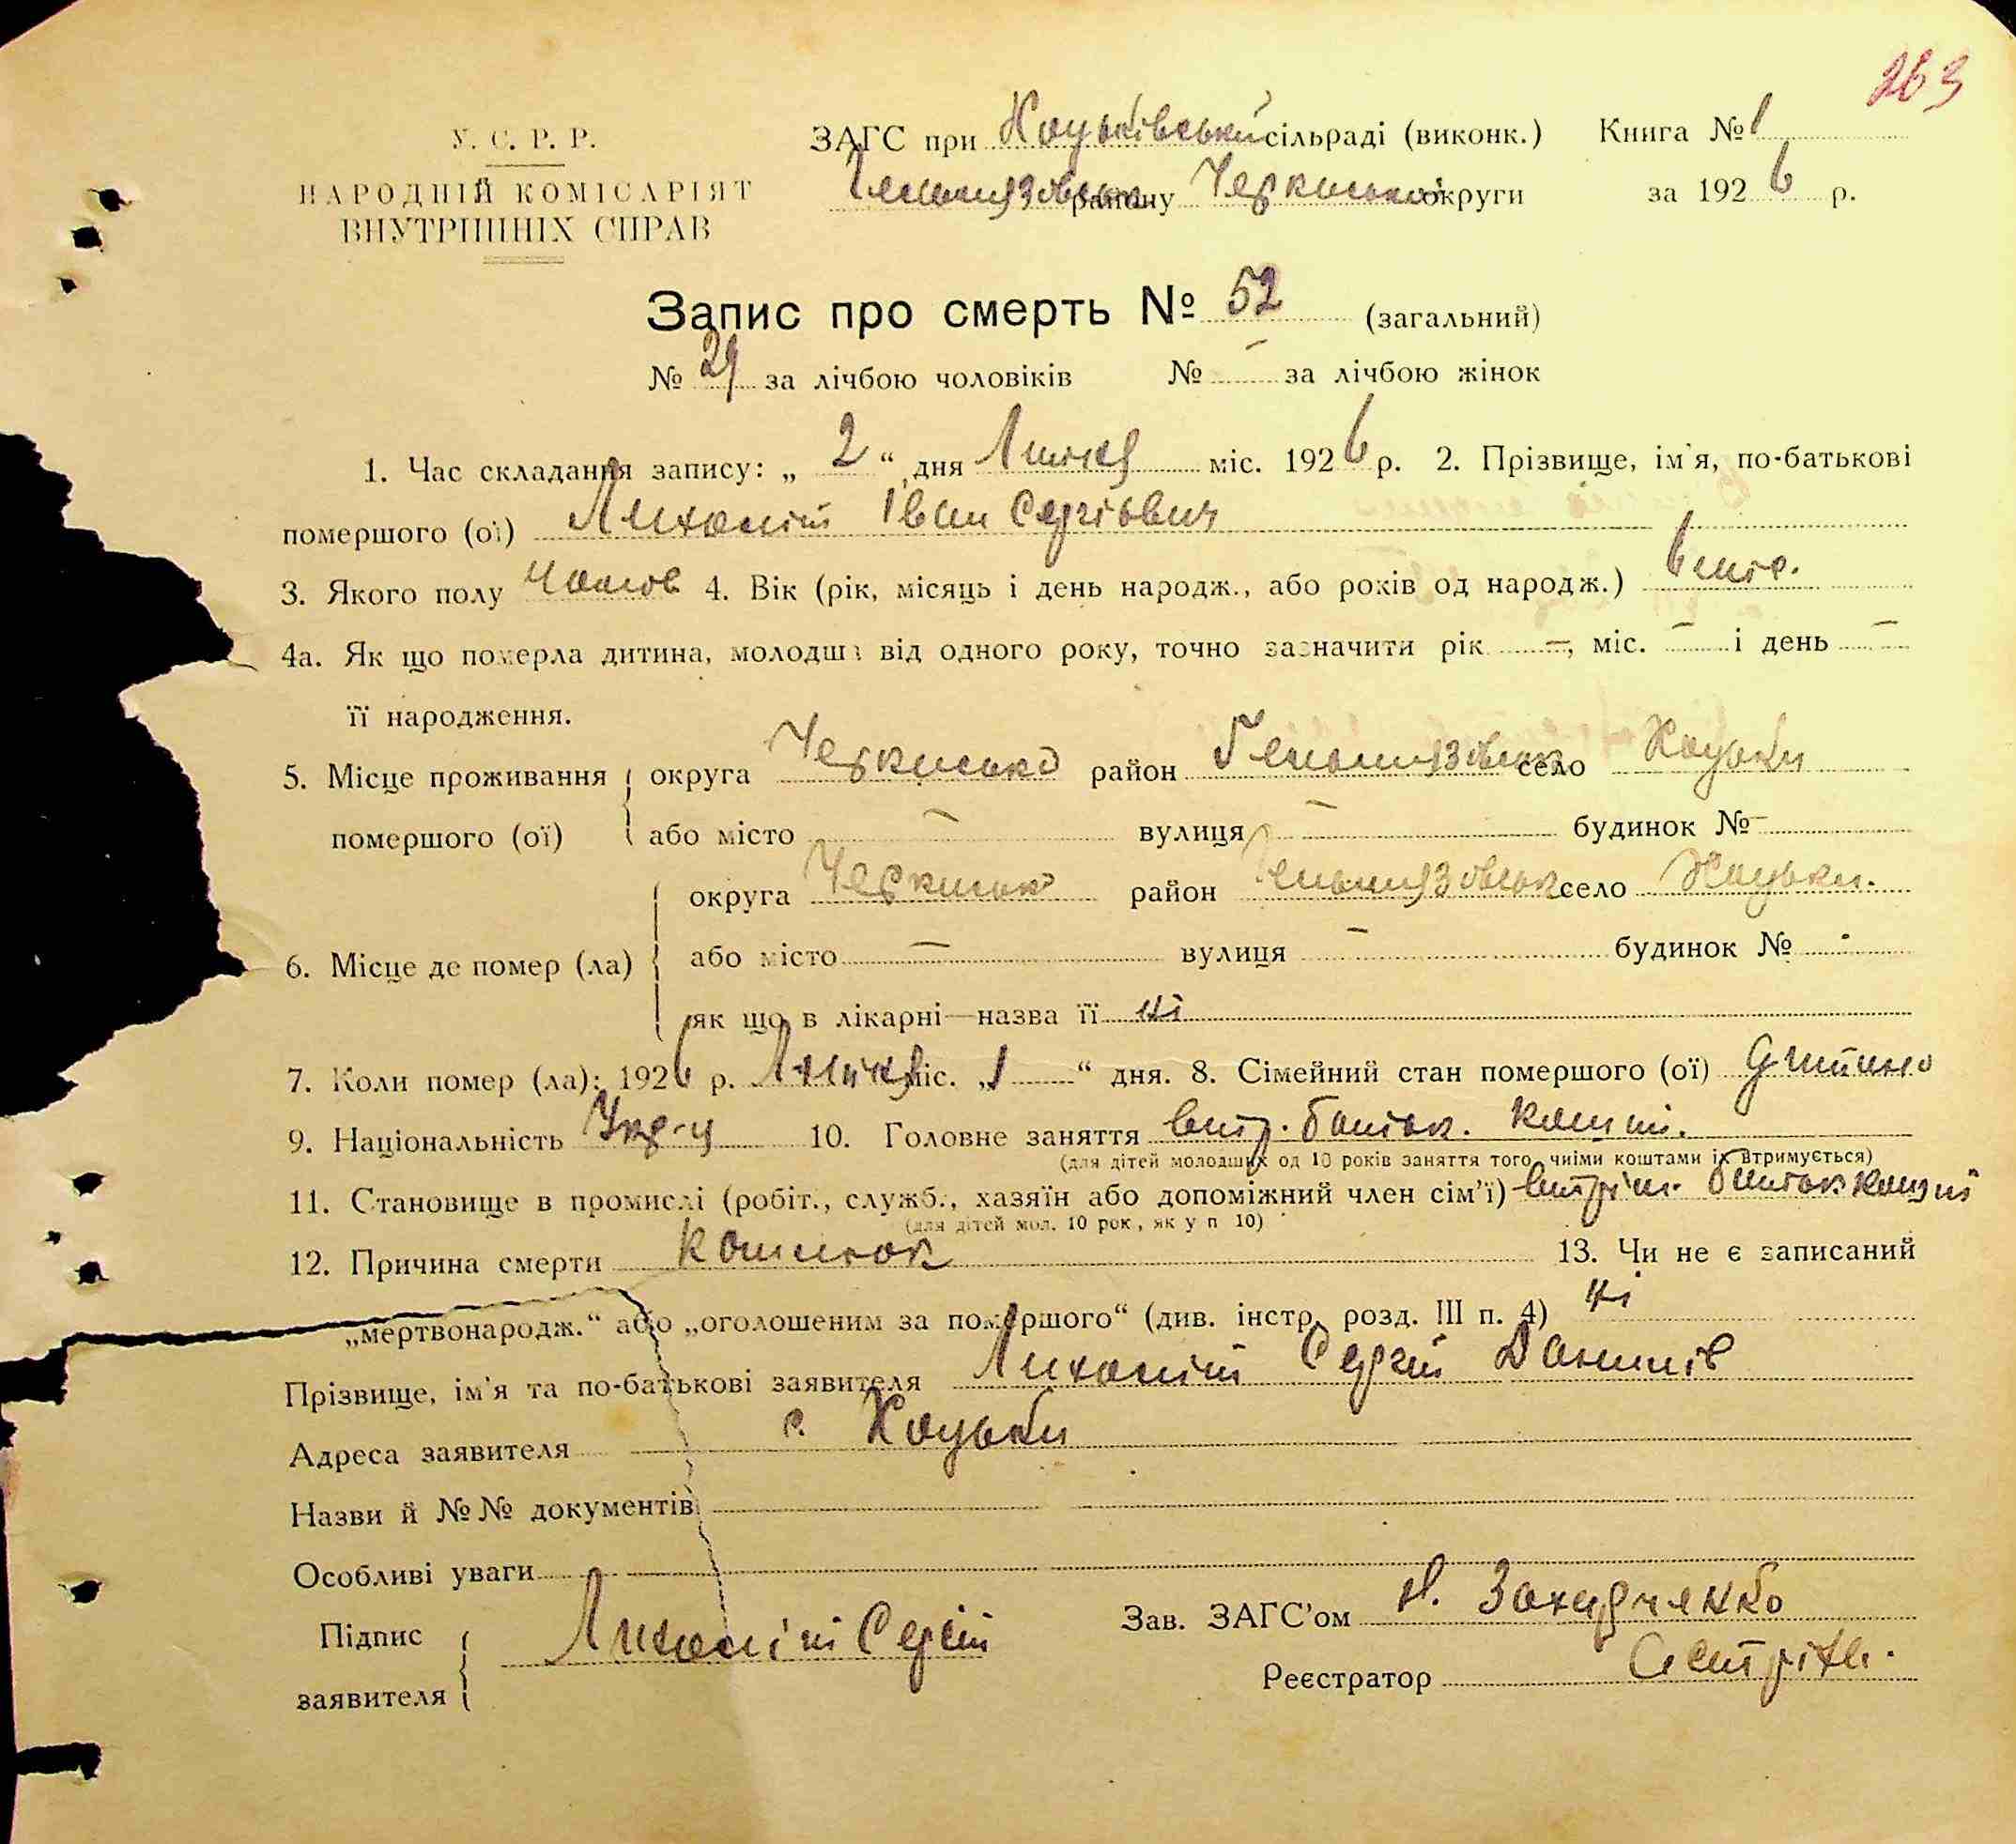 263
У. С. Р. Р.
НАРОДНІЙ КОМІСАРІЯТ
ВНУТРІШНІХ СПРАВ
ЗАГС при Хоцьківській сільраді (виконк.) Книга № 1
Гельмязівськ району Черкаської округи за 1926 р.
Запис про смерть № 52 (загальний)
№ 29 за лічбою чоловіків № – за лічбою жінок
1. Час складання запису: „ 2 “ дня Липня міс. 1926 р. 2. Прізвище, ім'я, по-батькові
помершого (ої) Лихоліт Іван Сергієвич
3. Якого полу Чолов 4. Вік (рік, місяць і день народж., або років од народж.) 6
4а. Як що померла дитина, молодша від одного року, точно зазначити рік –, міс. – і день –
її народження.
5. Місце проживання округа Черкисько район Гельмязівськ село Хоцьки
помершого (ої) або місто – вулиця – будинок № –
округа Черкисько район Гельмязівськ село Хоцьки.
6. Місце де помер (ла) або місто – вулиця – будинок № -
як що в лікарні—назва її ні
7. Коли помер (ла): 1926 р. Липня міс. „1 “ дня. 8. Сімейний стан помершого (ої) Дитина
9. Національність Укр-ц 10. Головне заняття батьк. кошті.
(для дітей молодших од 10 років заняття того, чиїми коштами їх втримується)
11. Становище в промислі (робіт., служб., хазяїн або допоміжний член сім'ї) батьк кошті
(для дітей мол. 10 рок, як у п 10)
12. Причина смерти Кошлюк 13. Чи не є записаний
„мертвонародж.“ або „оголошеним за помершого“ (див. інстр. розд. III п. 4) ні
Прізвище, ім'я та по-батькові заявителя Лихоліт Сергій Данилів
Адреса заявителя с. Хоцьки
Назви й №№ документів
Особливі уваги
Підпис заявителя Лихоліт Сергій
Зав. ЗАГС'ом Н. Захарченко
Реєстратор